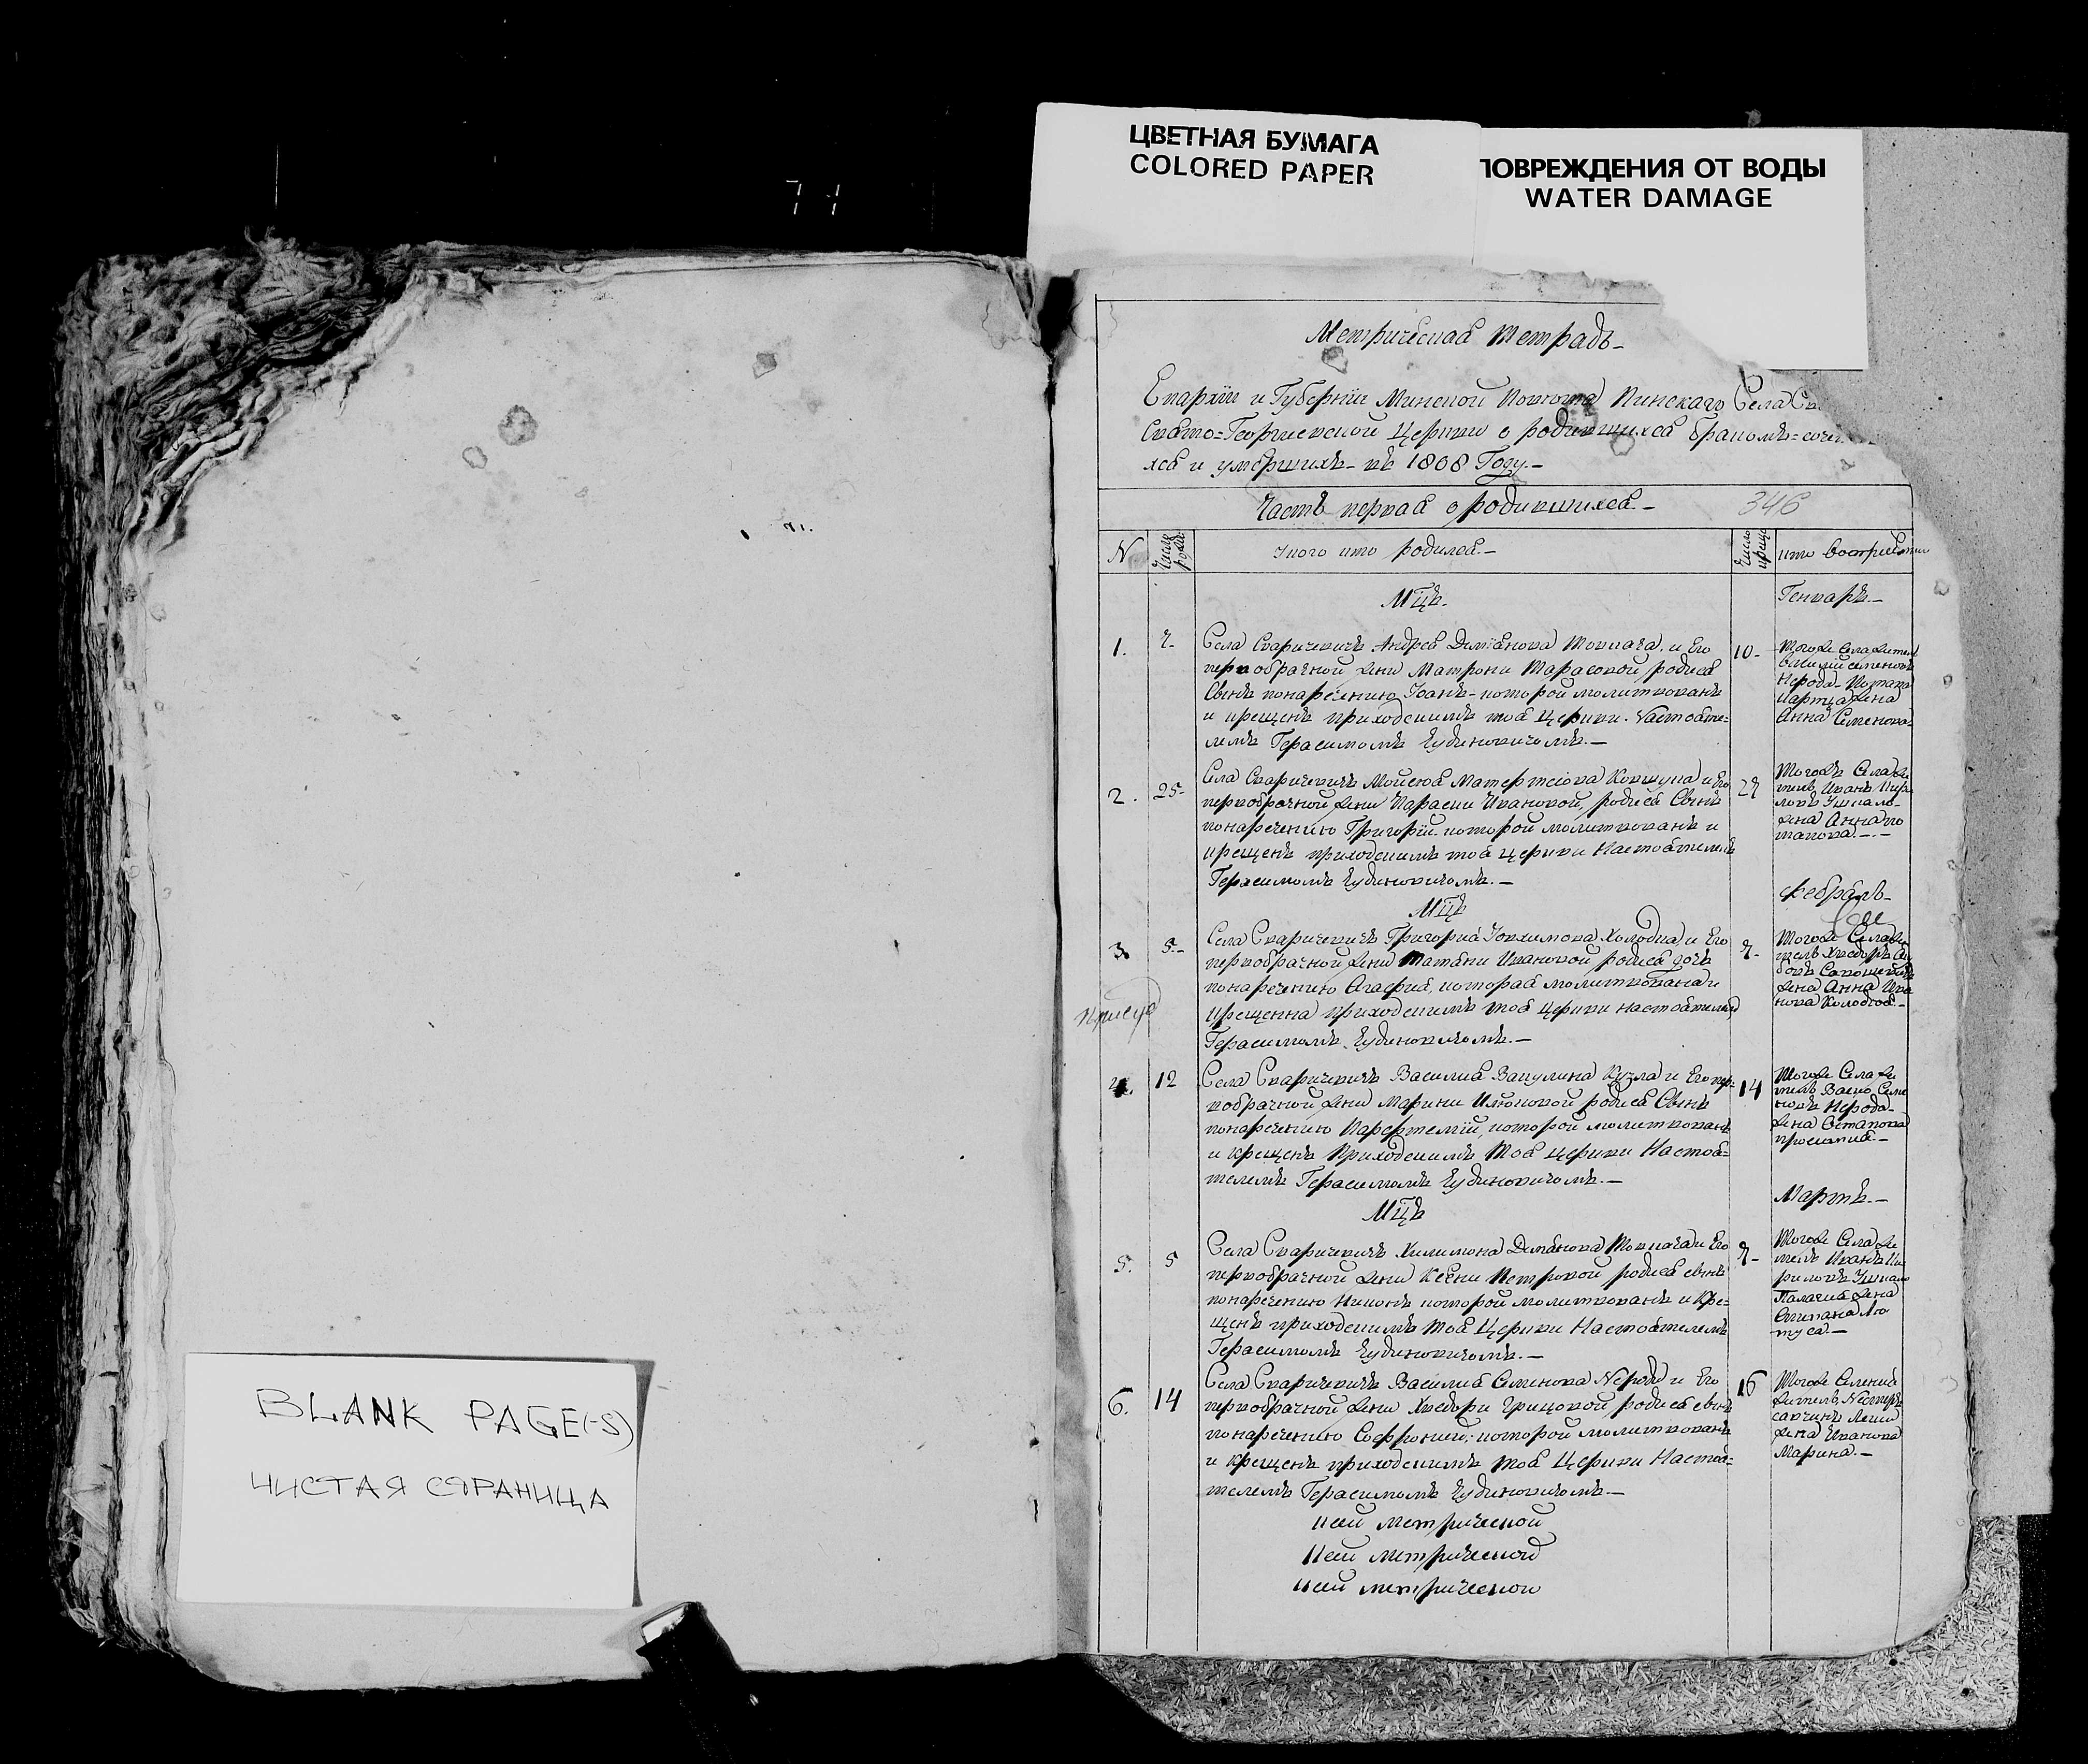 7 4
ЦВЕТНАЯ БУМАГА
COLORED PAPER
ПОВРЕЖДЕНИЯ ОТ ВОДЫ
WATER DAMAGE
BLANK PAGE(-S)
ЧИСТАЯ СТРАНИЦА
Метрическая тетрадь
Епархіи и Губерніи Минской Повѣта Пинскаго Села Св
Свято=Георгиевской Церкви о родившихся бракомъ=соче
хся и умершихъ въ 1808 Году.
Часть первая о родившихся.
346
N
Число рожд
У кого кто родился.
Число крещ
кто восприем
Мцъ.
Генварь.
1.
7
Села Сваричевичъ Андрея Дамiянова Товкача, и Его
первобрачной жены Матрони Тарасовой, родися
Сынъ понаречению Іоанъ которой молитвованъ
и крещенъ приходскимъ тоя Церкви. Настояте=
лемъ Герасимомъ Еудиновичомъ.
10
Тогоже Села житель
Василий Семеновъ
Нерода Потапа
жена
Анна Семенова
2.
25
Села Сваричевичъ Мойсея Ковшуна и Его
первобрачной жены Параски Ивановой, родися Сынъ
понаречению Григорій которой молитвованъ и
крещенъ приходскимъ тоя церкви Настоятелемъ
Герасимомъ Еудиновичомъ.
27
Тогожъ Села жи
тель Иванъ Кири
ловъ
жена Анна По
тапова.
Мцъ
Февраль
3.
5
Села Сваричевичъ Григорія Іовхимова Холодка и Его
первобрачной жены Татяни Ивановой родися дочь
понаречению Агафия которая молитвована и
крещенна приходскимъ тоя церкви настоятелемъ
Герасимомъ Еудиновичомъ.
7
Тогоже Села жи
тель Хведоръ
жена Анна Ива
нова Холодков
4.
12
Села Сваричевичъ Василия Вакулина Кузла и Его пер=
вобрачной жены Марини родися Сынъ
понаречению Парфтемiй, которой молитвованъ
и крещенъ Приходскимъ Тоя церкви Настоя=
телемъ Герасимомъ Еудиновичомъ.
14
Тогоже Села жи
тель Васил Семе
новъ Нерода
жена Остапова
Мцъ
Мартъ.
5.
5
Села Сваричевичъ Хилимона Дамянова Товкача и Его
первобрачной жены Ксени Петровой родися сынъ
понаречению Никонъ которой молитвованъ и кре=
щенъ приходскимъ тоя Церкви Настоятелемъ
Герасимомъ Еудиновичомъ.
7
Тогоже Села жи
тель Иванъ Ки
риловъ
Палагия жена
Степана Лю
туса.
6.
14
Села Сваричевичъ Василия Семенова Нероди и Его
первобрачной жены Хведори Грицовой, родися сынъ
понаречению Софроний, которой молитвованъ
и крещенъ приходскимъ тоя Церкви Настоя=
телемъ Герасимомъ Еудиновичомъ
16
Тогоже Селения
житель Нестеръ
жена Иванова
Марина.
сей метрической
сей метрической
сей метрической